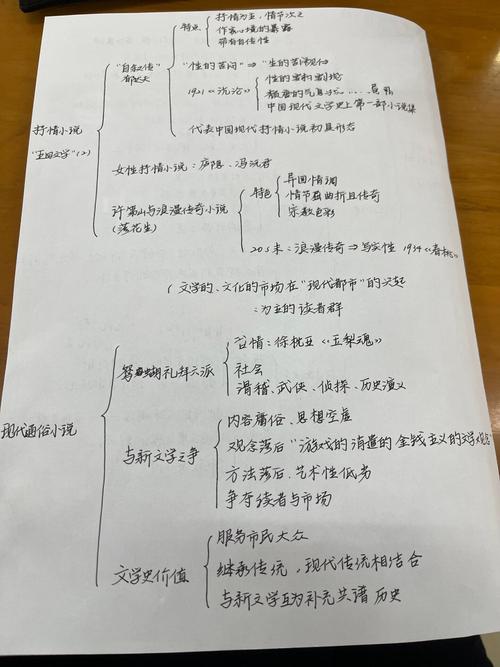 抒情为主，情节次之
特点 作家心境的暴露
带有自传性
"自叙传"
郁达夫
"性的苦闷" ⇒ "生的苦闷"
性的苦闷
1921《沉沦》
颓唐的气息
中国现代文学史上第一部小说集
代表中国现代抒情小说初具形态
抒情小说
"五四文学"(2)
女性抒情小说：庐隐、冯沅君
异国情调
特色 情节曲折且传奇
宗教色彩
许地山与浪漫传奇小说
(落花生)
20s末：浪漫传奇 ⇒ 写实性 1934《春桃》
文学的、文化的市场在"现代都市"的兴起
为主的读者群
言情：徐枕亚《玉梨魂》
鸳鸯蝴蝶礼拜六派 社会
滑稽、武侠、侦探、历史演义
现代通俗小说
内容庸俗、思想空虚
与新文学之争 观念落后"游戏的消遣的金钱主义的文学观念"
方法落后、艺术性低劣
争夺读者与市场
服务市民大众
文学史价值 继承传统，现代传统相结合
与新文学互为补充共谱历史